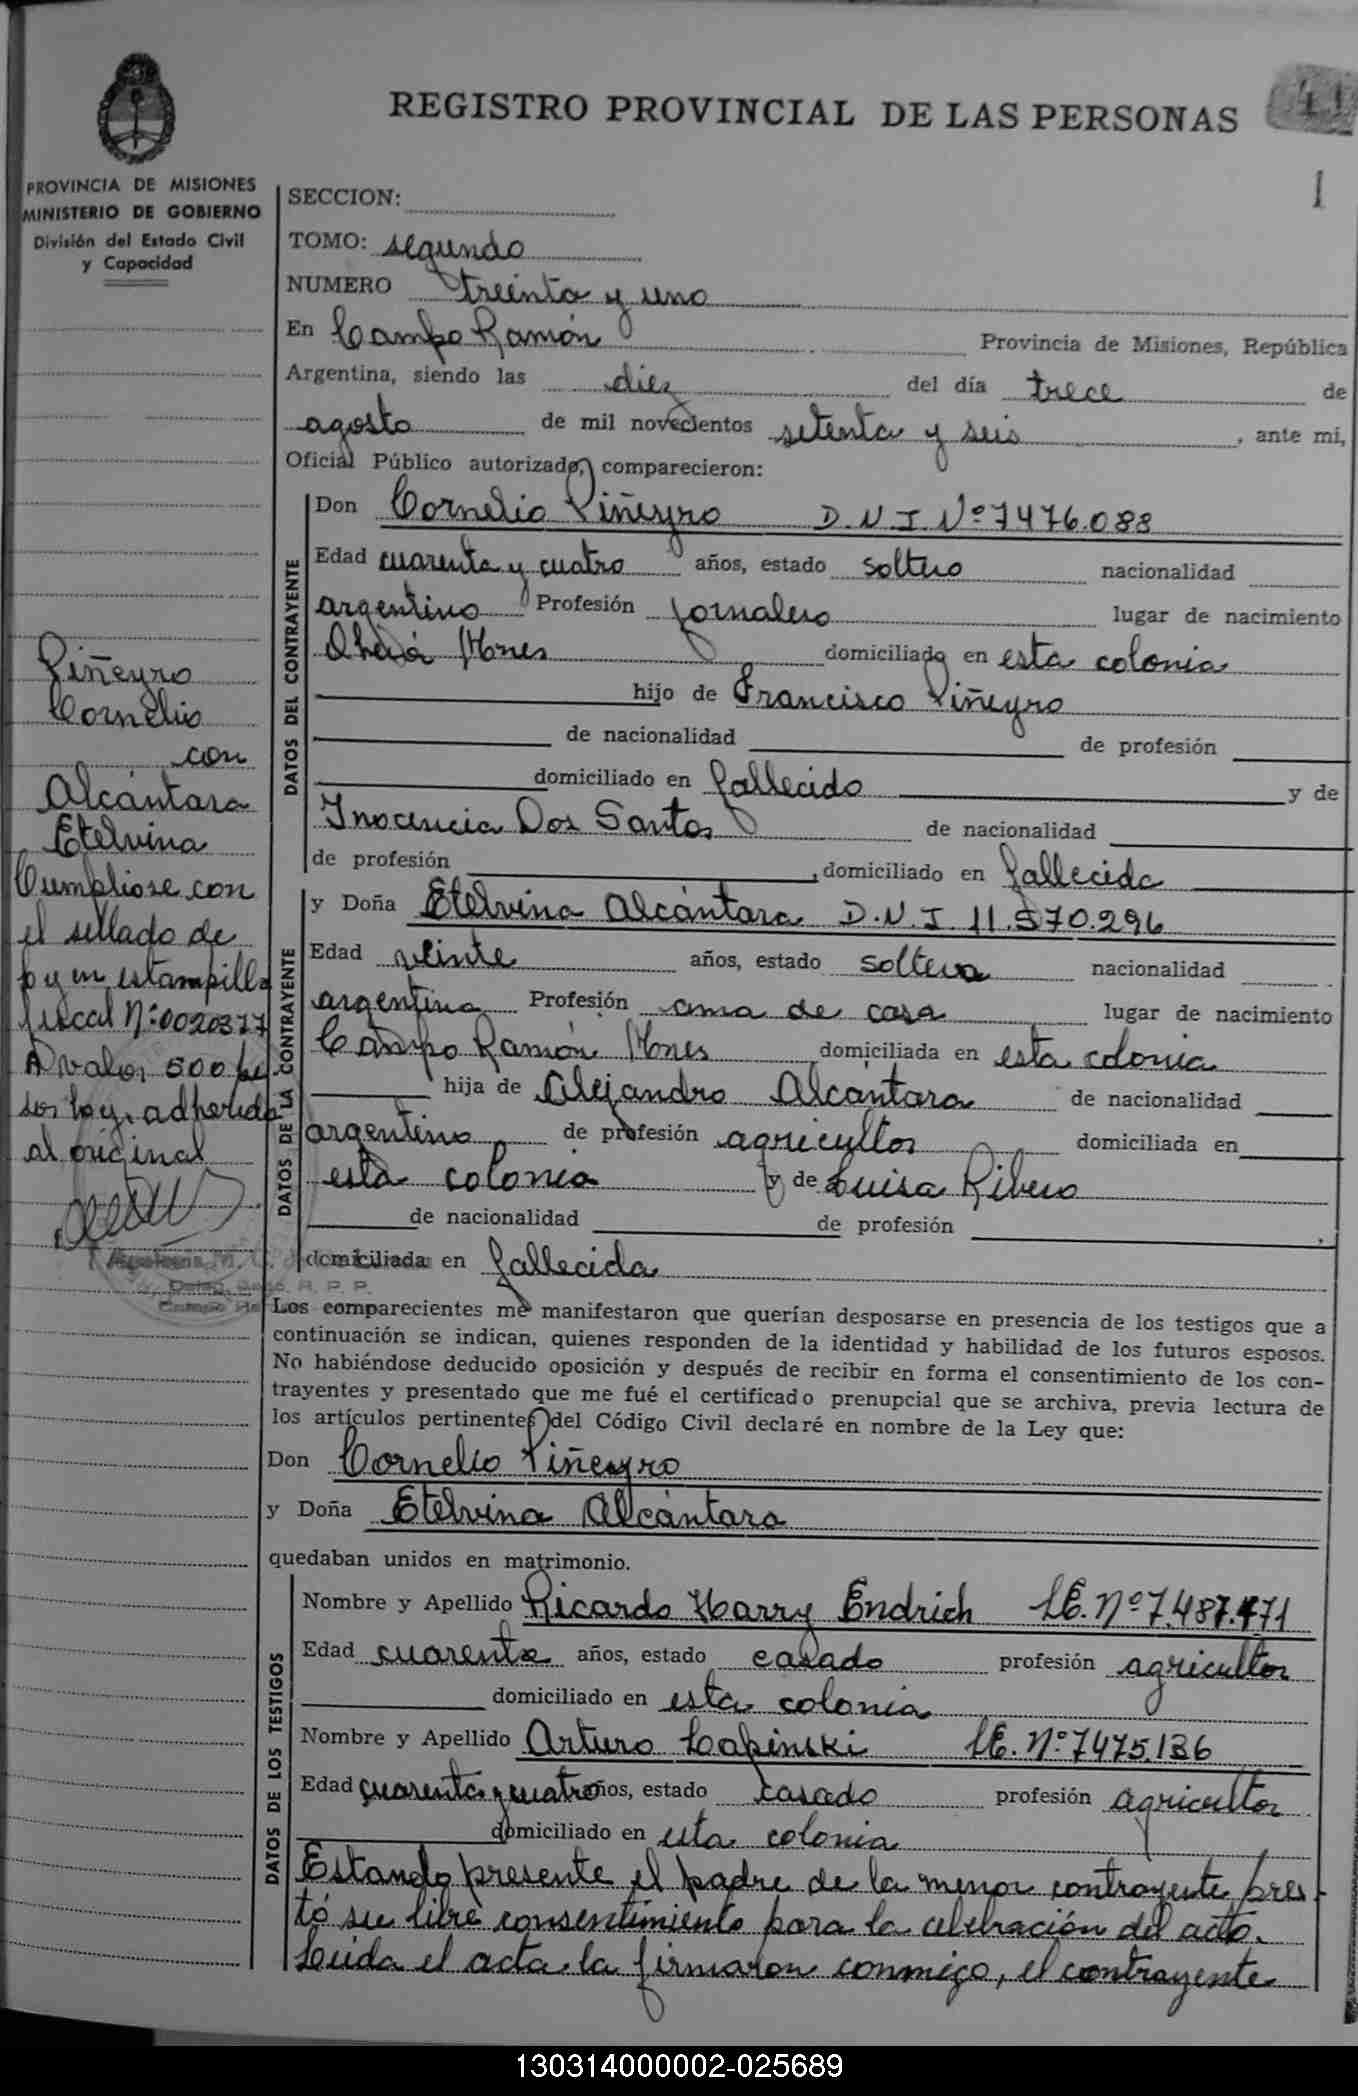 REGISTRO PROVINCIAL DE LAS PERSONAS
41
1
PROVINCIA DE MISIONES
MINISTERIO DE GOBIERNO
División del Estado Civil
y Capacidad
SECCION:
TOMO: segundo
NUMERO treinta y uno
En Campo Ramón Provincia de Misiones, República
Argentina, siendo las diez del día trece de
agosto de mil novecientos setenta y seis, ante mi,
Oficial Público autorizado, comparecieron:
DATOS DEL CONTRAYENTE
Don Cornelio Piñeyro D.N.I. Nº 7476.088
Edad cuarenta y cuatro años, estado soltero nacionalidad
argentino Profesión jornalero lugar de nacimiento
Oberá Mnes domiciliado en esta colonia
hijo de Francisco Piñeyro
de nacionalidad de profesión
domiciliado en fallecido y de
Inocencia Dos Santos de nacionalidad
de profesión , domiciliado en fallecida
DATOS DE LA CONTRAYENTE
y Doña Etelvina Alcántara D.N.I. 11.570.296
Edad veinte años, estado soltera nacionalidad
argentina Profesión ama de casa lugar de nacimiento
Campo Ramón Mnes domiciliada en esta colonia
hija de Alejandro Alcántara de nacionalidad
argentino de profesión agricultor domiciliada en
esta colonia y de Luisa Ribero
de nacionalidad de profesión
domiciliada en fallecida
Piñeyro
Cornelio
con
Alcántara
Etelvina
Cumpliose con
el sellado de
ley en estampilla
fiscal Nº:0020377
A valor 500 pe
sos ley, adherida
al original
Los comparecientes me manifestaron que querían desposarse en presencia de los testigos que a
continuación se indican, quienes responden de la identidad y habilidad de los futuros esposos.
No habiéndose deducido oposición y después de recibir en forma el consentimiento de los con-
trayentes y presentado que me fué el certificado prenupcial que se archiva, previa lectura de
los artículos pertinentes del Código Civil declaré en nombre de la Ley que:
Don Cornelio Piñeyro
y Doña Etelvina Alcántara
quedaban unidos en matrimonio.
DATOS DE LOS TESTIGOS
Nombre y Apellido Ricardo Harry Endrich LE. Nº 7.487.471
Edad cuarenta años, estado casado profesión agricultor
domiciliado en esta colonia
Nombre y Apellido Arturo Lapinski LE. Nº 7475.136
Edad cuarenta y cuatro años, estado casado profesión agricultor
domiciliado en esta colonia
Estando presente el padre de la menor contrayente pres-
tó su libre consentimiento para la celebración del acto.
Leida el acta la firmaron conmigo, el contrayente
130314000002-025689